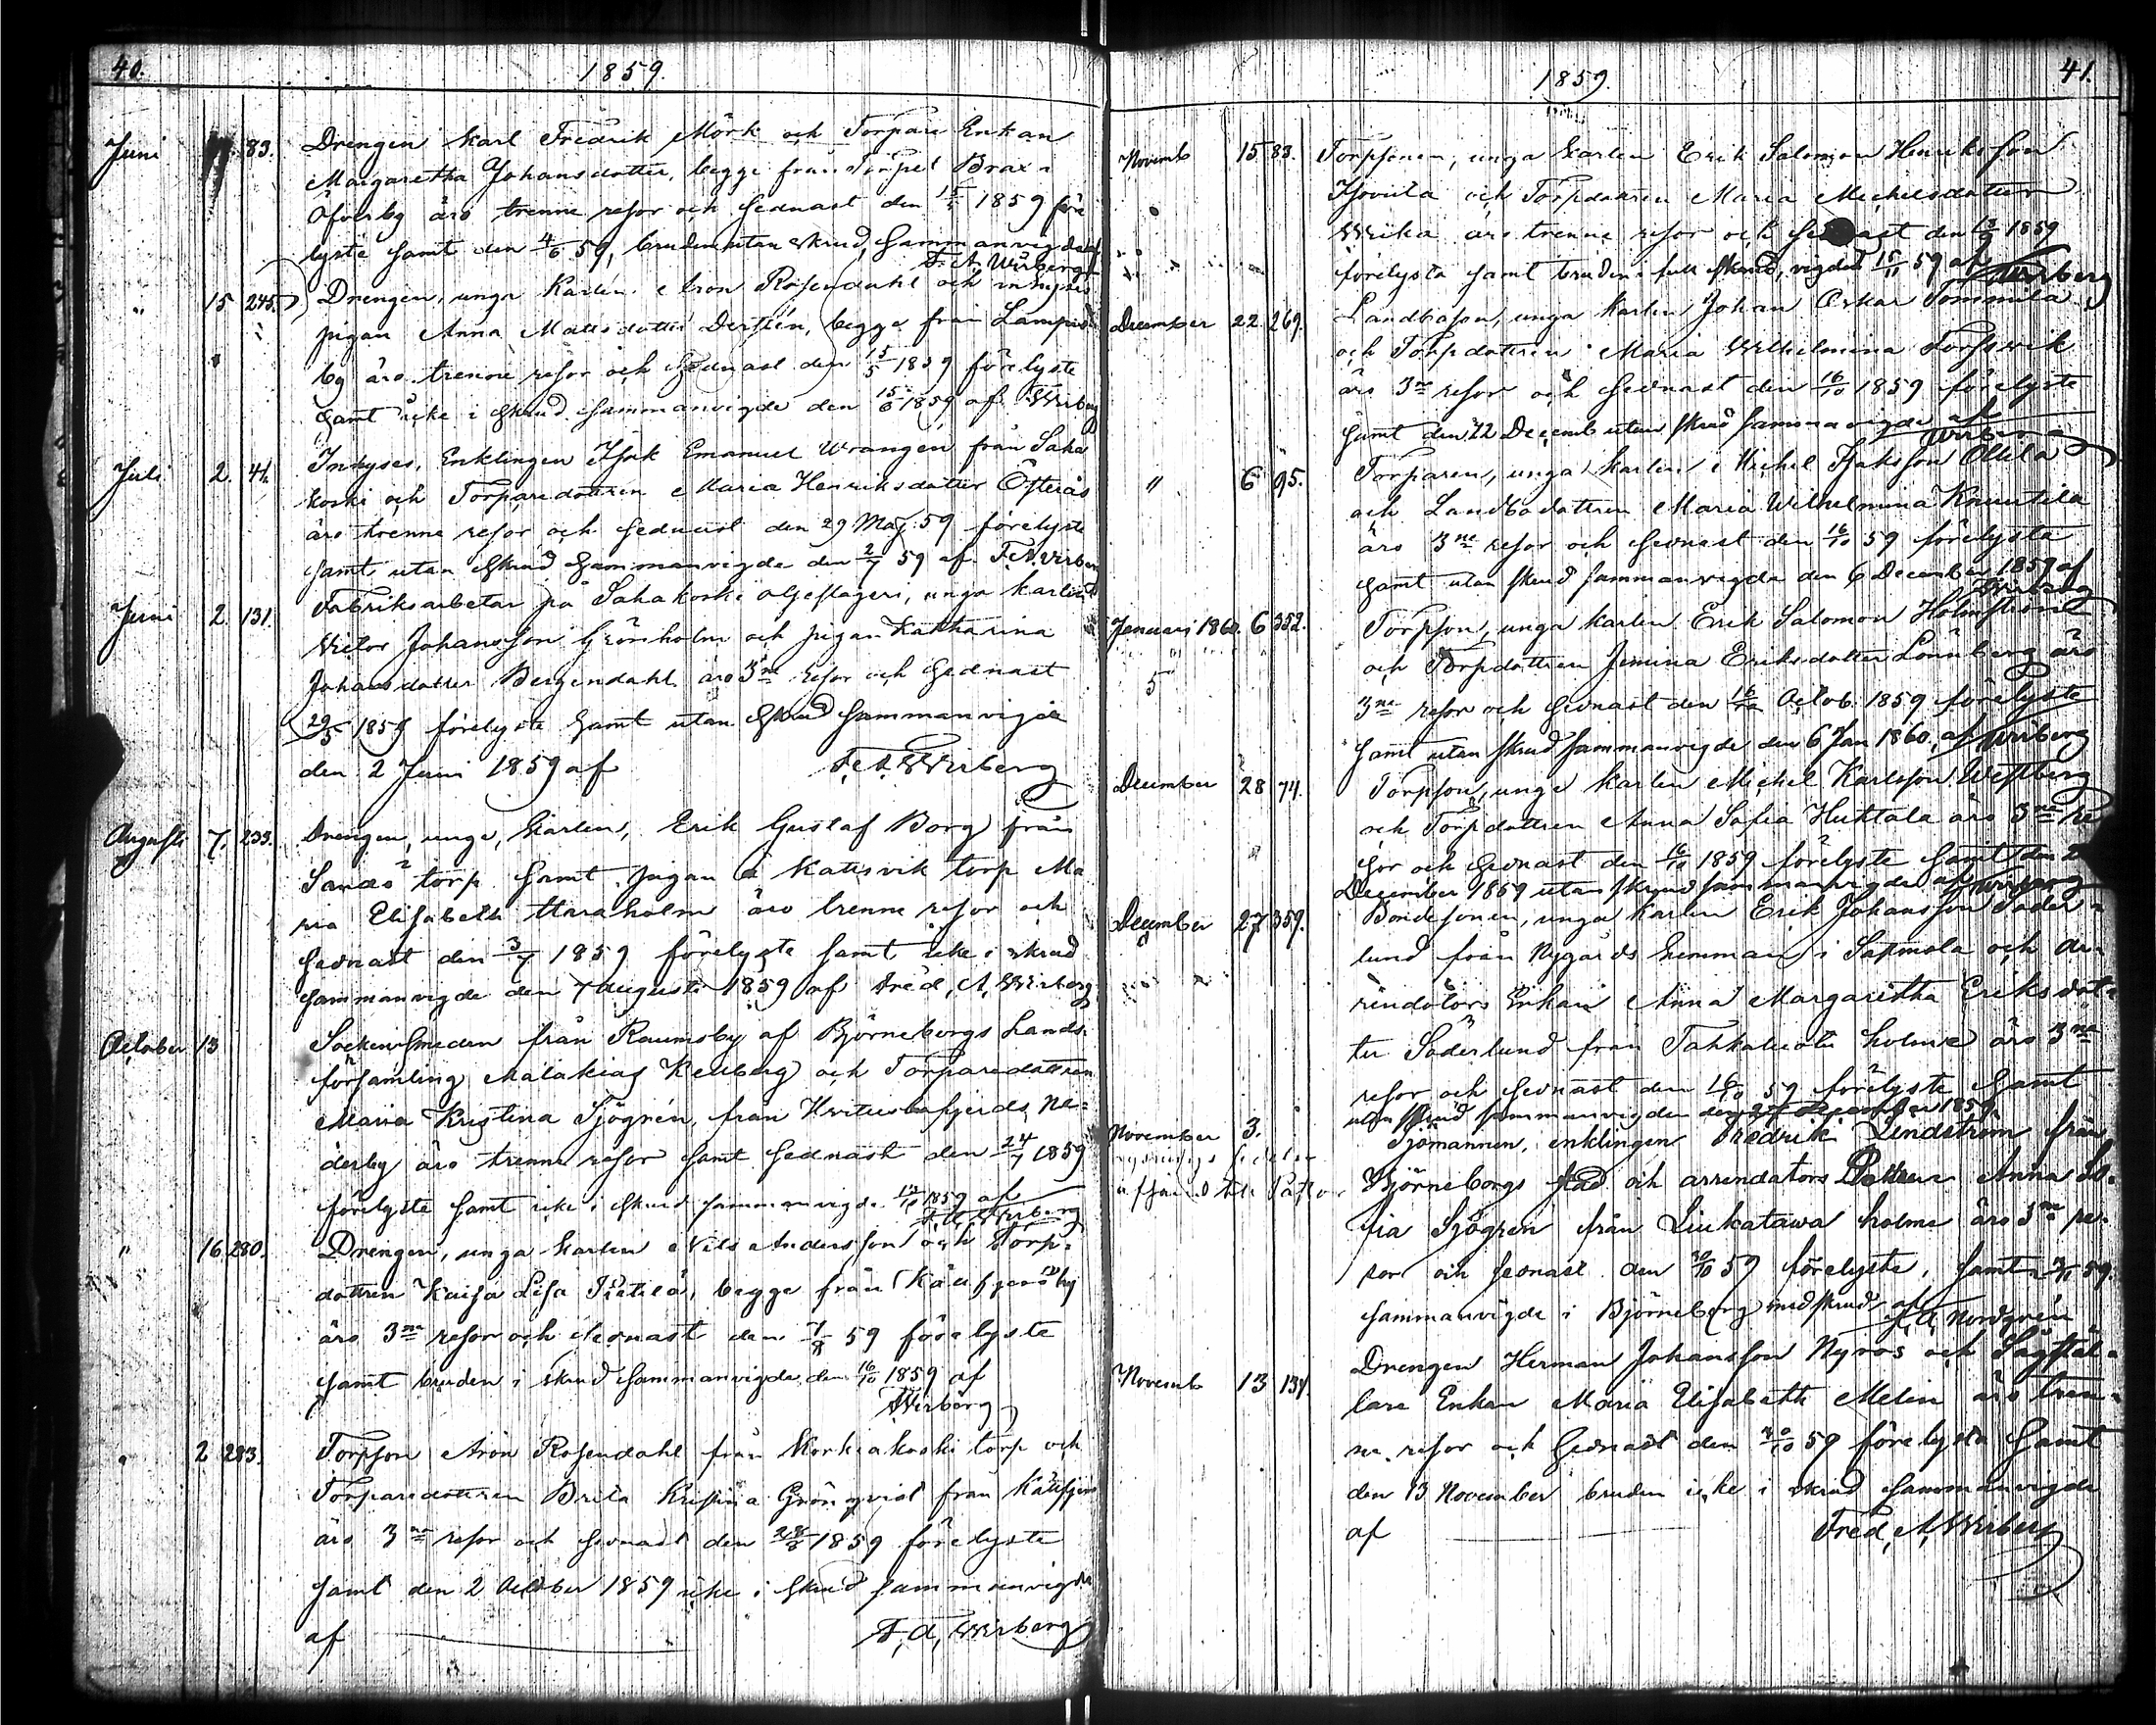 40.
1859.
Juni 4 83. Drengen Karl Fredrik Mörk och Torpare Enkan
Margaretha Johansdotter, begge från Torpet Brax
Öfverby äro trenne resor och sednast den 15/5 1859 före
lyste samt den 4/6 59, bruden utan skrud, sammanvigde af
F. A. Wirberg
" 15 245. Drengen, unga Karlen Aron Rosendahl och inhyses
pigan Anna Matsdotter Derflén, begge från Lampis
by äro trenne resor och sednast den 15/5 1859 förelyste
samt icke i skrud sammanvigde den 15/6 1859 af Wirberg
Juli 2. 41. Inhyses, Enklingen Isak Emanuel Wrangén från Saha
koski och Torparedottren Maria Henriksdotter Öfterås
äro trenne resor och sednast den 29 Maj 59 förelyste
samt utan skrud sammanvigde den 2/7 59 af F. A. Wirberg
Juni 2. 131. Fabriksarbetar på Sahakoski oljeslageri, unga karlen
Victor Johansson Grönholm och pigan Katharina
Johansdotter Bergendahl äro 3ne resor och sednast
29/5 1859 förelyste samt utan skrud sammanvigde
den 2 Juni 1859 af F. A. Wirberg
Augusti 7. 233. Drengen, unge, Karlen, Erik Gustaf Borg från
Sandö torp samt pigan å Kattsvik torp Ma
ria Elisabeth Haraholm äro trenne resor och
sednast den 3/7 1859 förelyste samt icke i skrud
sammanvigde den 7 Augusti 1859 af Fred. A. Wirberg
October 13 Sockensmeden från Raumsby af Björneborgs Lands
församling Malakias Renberg och Torparedottren
Maria Kristina Sjögrén, från Hvittisbofjerds Ne=
derby äro trenne resor samt sednast den 24/7 1859
förelyste samt icke i skrud sammanvigde 13/10 1859 af
F. A. Wirberg
" 16. 280. Drengen, unga karlen Nils Andersson och Torp=
dottren Kaisa Lisa Pietilä, begge från Källfjerdsby
äro 3ne resor och sednast den 7/8 59 förelyste
samt bruden i skrud sammanvigde den 16/10 1859 af
Wirberg
" 2 283. Torpson Aron Rosendahl från Korkiakoski torp och
Torparedottren Brita Kristina Grönqvist från Källfjerd
äro 3ne resor och sednast den 28/8 1859 förelyste
samt den 2 October 1859 icke i skrud sammanvigde
af F. A. Wirberg
1859.
41.
Novemb 15 83. Torpsonen, unga karlen Erik Salomon Henriksson
och Torpdottren Maria Michelsdotter
Wrika äro trenne resor och sednast den 18/9 1859
förelysta samt bruden i full skrud, vigde 15/11 59 af Wirberg
December 22. 269. Landboson, unga karlen Johan Oskar Tommila
och Torpdottren Maria Wilhelmina Forsswik
äro 3ne resor och sednast den 16/10 1859 förelyste
samt den 22 Decemb utan skrud sammanvigde af
Wirberg
" 6 95. Torparen, unga karlen Michel Isaksson Ollila
och Landbodottren Maria Wilhelmina Knuutila
äro 3ne resor och sednast den 16/10 59 förelysta
samt utan skrud sammanvigde den 6 December 1859 af
Wirberg
Januari 1860. 6 352. Torpson, unga karlen Erik Salomon Holmström
och Torpdottren Jemina Eriksdotter Lönnberg äro
3ne resor och sednast den 16/10 Octob. 1859 förelyste
samt utan skrud sammanvigde den 6 Jan 1860, af Wirberg
December 28 74. Torpson, unge karlen Michel Karlsson Westberg
och Torpdottren Anna Sofia Huhtala äro 3ne re
sor och sednast den 16/10 1859 förelyste samt den 2
December 1859 utan skrud sammanvigde af Wirberg
December 27 359. Bondesonen, unga karlen Erik Johansson Söder=
lund från Nygårds hemman i Sastmola och ar=
rendators Enkan Anna Margaretha Eriksdot=
ter Söderlund från Tahkaluoto holme äro 3ne
resor och sednast den 16/10 59 förelyste samt
utan skrud sammanvigden den 27 December 1859.
November 3. Sjömannen, enklingen Fredrik Lindström från
Björneborgs stad och arrendators Dottren Anna So=
fia Sjögren från Liukatawa holme äro 3ne re=
sor och sednast den 30/10 59 förelyste, samt 3/11 59
sammanvigde i Björneborg med skrud af
Nordgrén
Novemb 13 134. Drengen Herman Johansson Nyros och Sågstäl=
lare Enkan Maria Elisabeth Melin äro tren=
ne resor och sednast den 30/10 59 förelysta samt
den 13 November bruden icke i skrud sammanvigde
af Fred. A. Wirberg